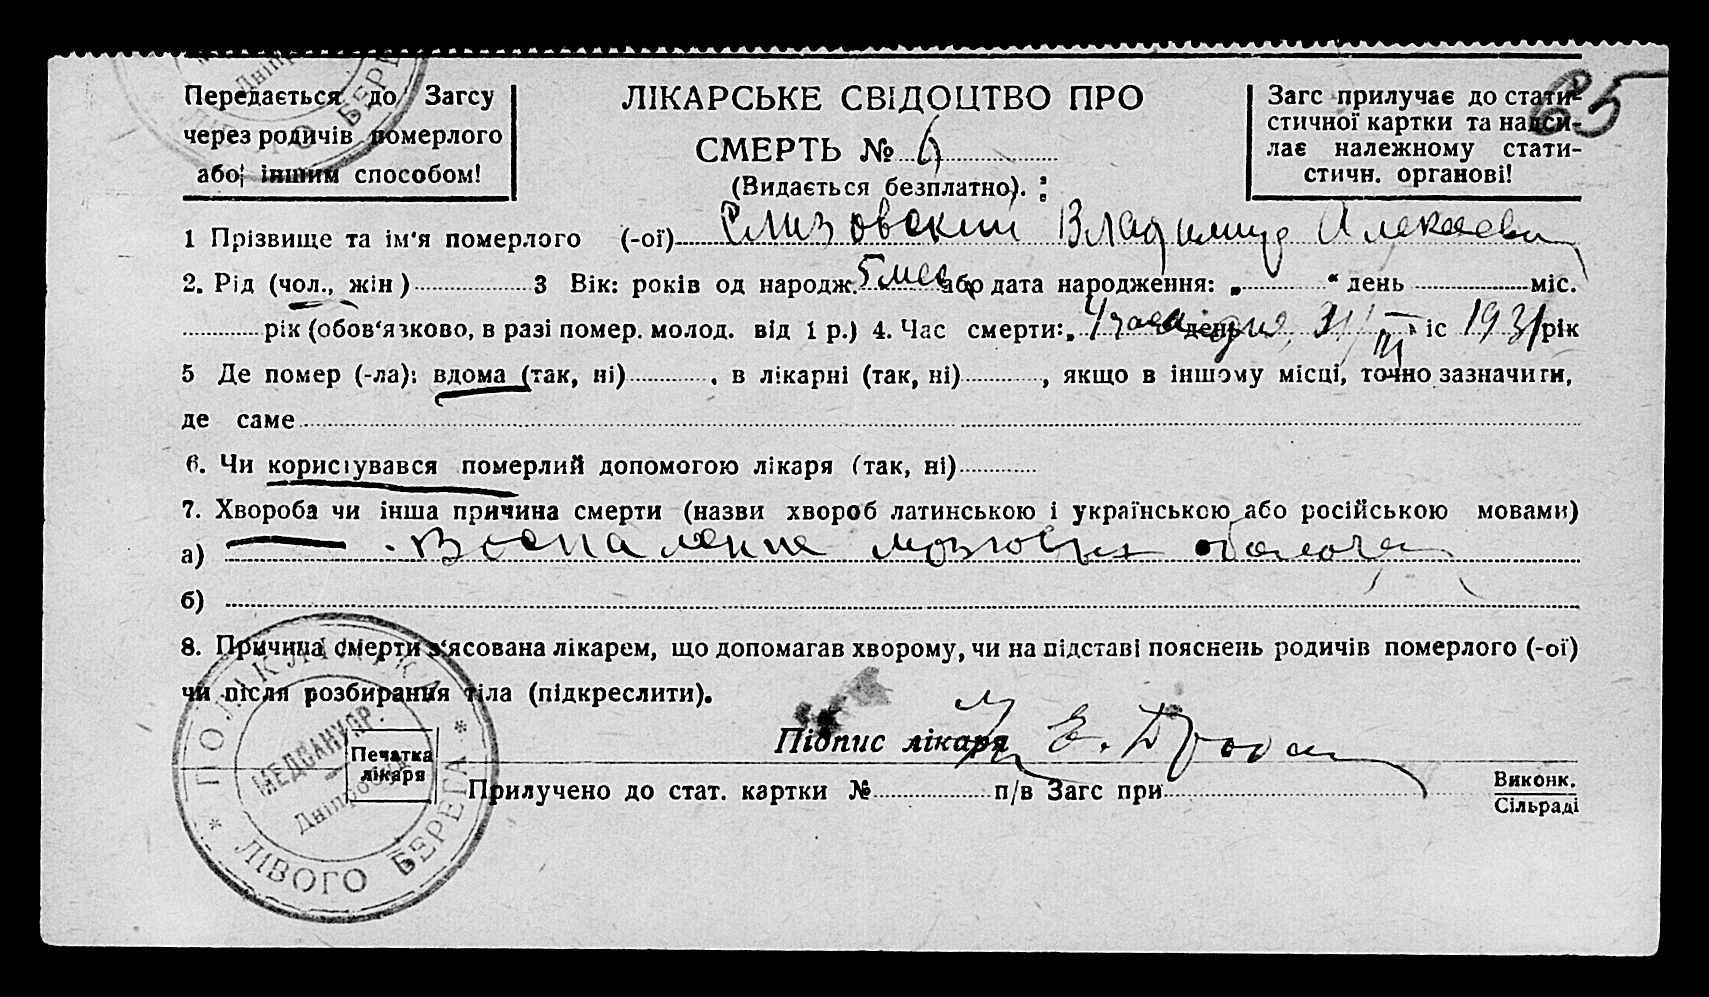 65
Передається до Загсу
через родичів померлого
або іншим способом!
ЛІКАРСЬКЕ СВІДОЦТВО ПРО
СМЕРТЬ № 6
(Видається безплатно).
Загс прилучає до стати-
стичної картки та надси-
лає належному стати-
стичн. органові!
1 Прізвище та ім'я померлого (-ої) Елизовский Владимир Алексеевич
2. Рід (чол., жін) 3 Вік: років од народж. 5 мес або дата народження: „ “ день міс.
рік (обов'язково, в разі помер. молод. від 1 р.) 4. Час смерти: „ 4 часа дня, день 31/III міс 1931 рік
5 Де помер (-ла): вдома (так, ні) , в лікарні (так, ні) , якщо в іншому місці, точно зазначити,
де саме
6. Чи користувався померлий допомогою лікаря (так, ні)
7. Хвороба чи інша причина смерти (назви хвороб латинською і українською або російською мовами)
а) Воспаление мозговых оболочек
б)
8. Причина смерти з'ясована лікарем, що допомагав хворому, чи на підставі пояснень родичів померлого (-ої)
чи після розбирання тіла (підкреслити).
Підпис лікаря
Печатка
лікаря
Прилучено до стат. картки № п/в Загс при Виконк.
Сільраді
ПОЛІКЛІНІКА ЛІВОГО БЕРЕГА